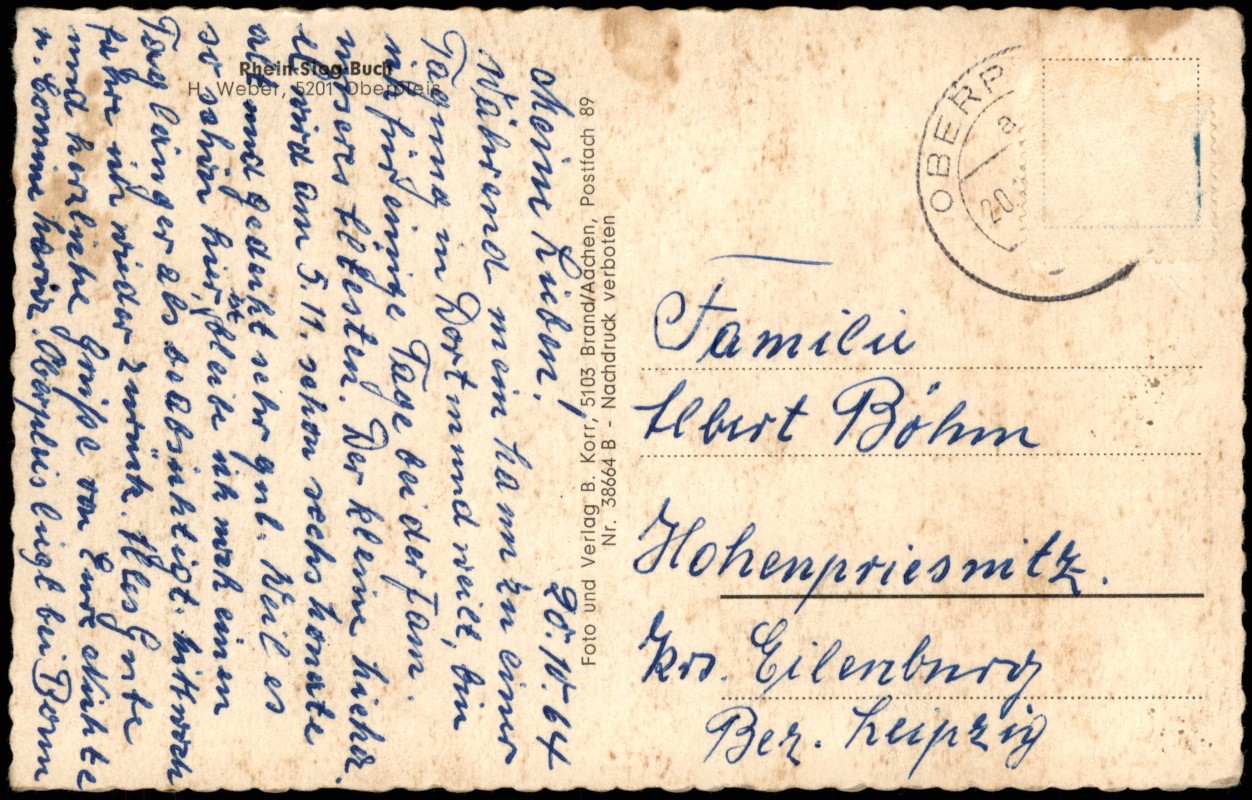 Rhein-Sieg-Buch
H. Weber, 5201 Oberpleis
20.10.64
Meine Lieben!
Während mein Mann zu einer
Tagung in Dortmund weilt, bin
ich für einige Tage bei der Fam.
unseres Ältesten. Der kleine Michael
wird am 5.11. schon sechs Monate
alt und gedeiht sehr gut. Weil es
so schön hier ist, bleibe ich noch einen
Tag länger als beabsichtigt. Mittwoch
fahre ich wieder zurück. Alles Gute
und herzliche Grüße von Eure Nichte
u. Cousine Maria. Oberpleis liegt bei Bonn
Foto und Verlag B. Korr, 5103 Brand/Aachen, Postfach 89
Nr. 38664 B - Nachdruck verboten
OBERP
a
20.
Familie
Albert Böhm
Hohenpriesnitz.
Krs. Eilenburg
Bez. Leipzig